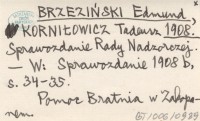 BRZEZIŃSKI Edmund,
KORNIŁOWICZ Tadeusz, 1908.
Sprawozdanie Rady Nadzorczej.
— W: Sprawozdanie 1908 b,
s. 34-35.
Pomoc Bratnia w Zakopa-
nem